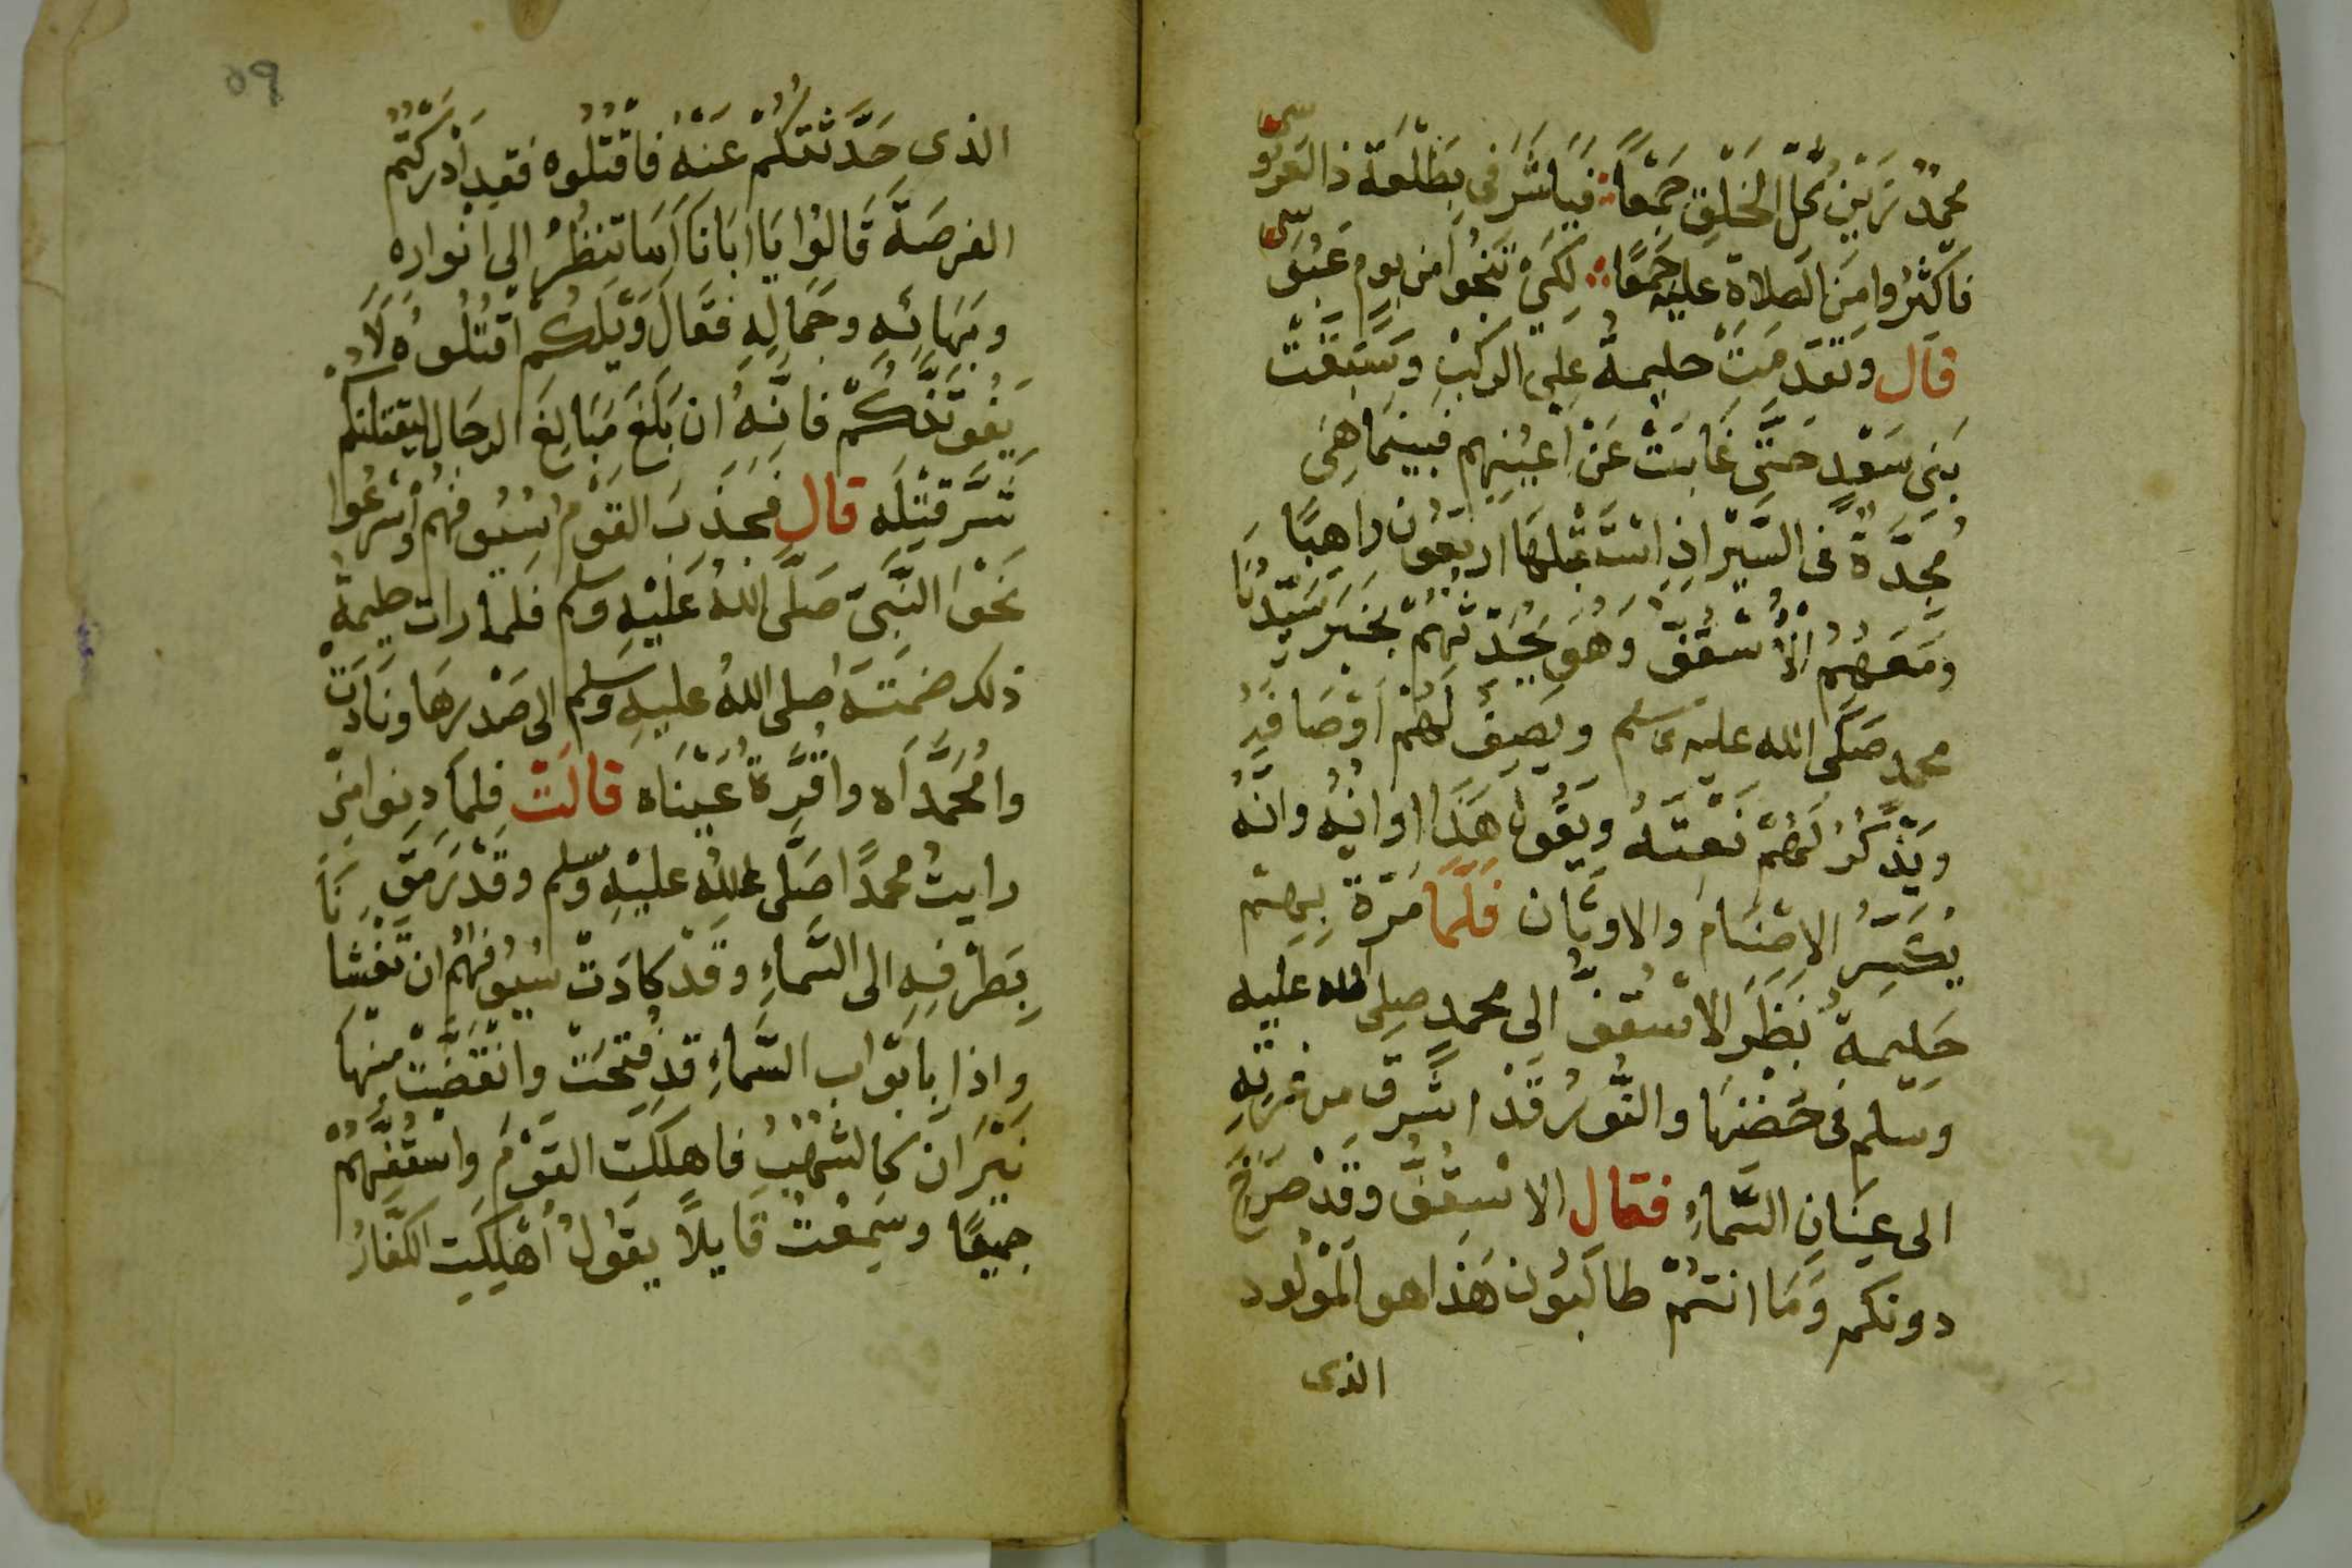 محمدٌ تزين كل الخلق جمعًا ؞ فيا شرفي بطلعة ذا العروسى
فاكثروا من الصلاة عليه جمعًا ؞ لكي تنجوا من يوم عبوسى
قال وتقدمت حليمة على الركب وسبقت
بني سعد حتى غابت عن اعينهم فبينما هي
مجدّة فى السير اذ استقبلها اربعون راهبًا
ومعهم اسقف وهو يحدثهم بخبر سيدنا
محمد صلى الله عليه وسلم ويصف لهم اوصافه
ويذكر لهم نعته ويقول هذا اوانه وانه
يكسر الاصنام والاوثان فلما مرة بهم
حليمة نظر الاسقف الى محمد صلى الله عليه
وسلم فى حضنها والنور قد اشرق من غرته
الى عنان السماء فقال الاسقف وقد صرخ
دونكم وما انتم طالبون هذا هو المولود
الذى
٥٩
الذى حدثتكم عنه فاقتلوه فقد ادركتم
الفرصة قالوا يا ابانا اما تنظر الى انواره
وبهائه وجماله فقال ويلكم اقتلوه لا
يفوتنكم فانه ان بلغ مبالغ الرجال ليقتلنكم
شر قتله قال فجذب القوم سيوفهم واسرعوا
نحو النبي صلى الله عليه وسلم فلما رات حليمة
ذلك ضمته صلى الله عليه وسلم الى صدرها ونادت
وا محمداه وا قرة عيناه قالت فلما دنوا مني
رايت محمدًا صلى الله عليه وسلم وقد رمق
بطرفه الى السماء وقد كادت سيوفهم ان تغشانا
واذا بابواب السماء قد فتحت وانقضت منها
نيران كالشهب فاهلكت القوم واسقفهم
جميعًا وسمعت قايلًا يقول اهلكت الكفار